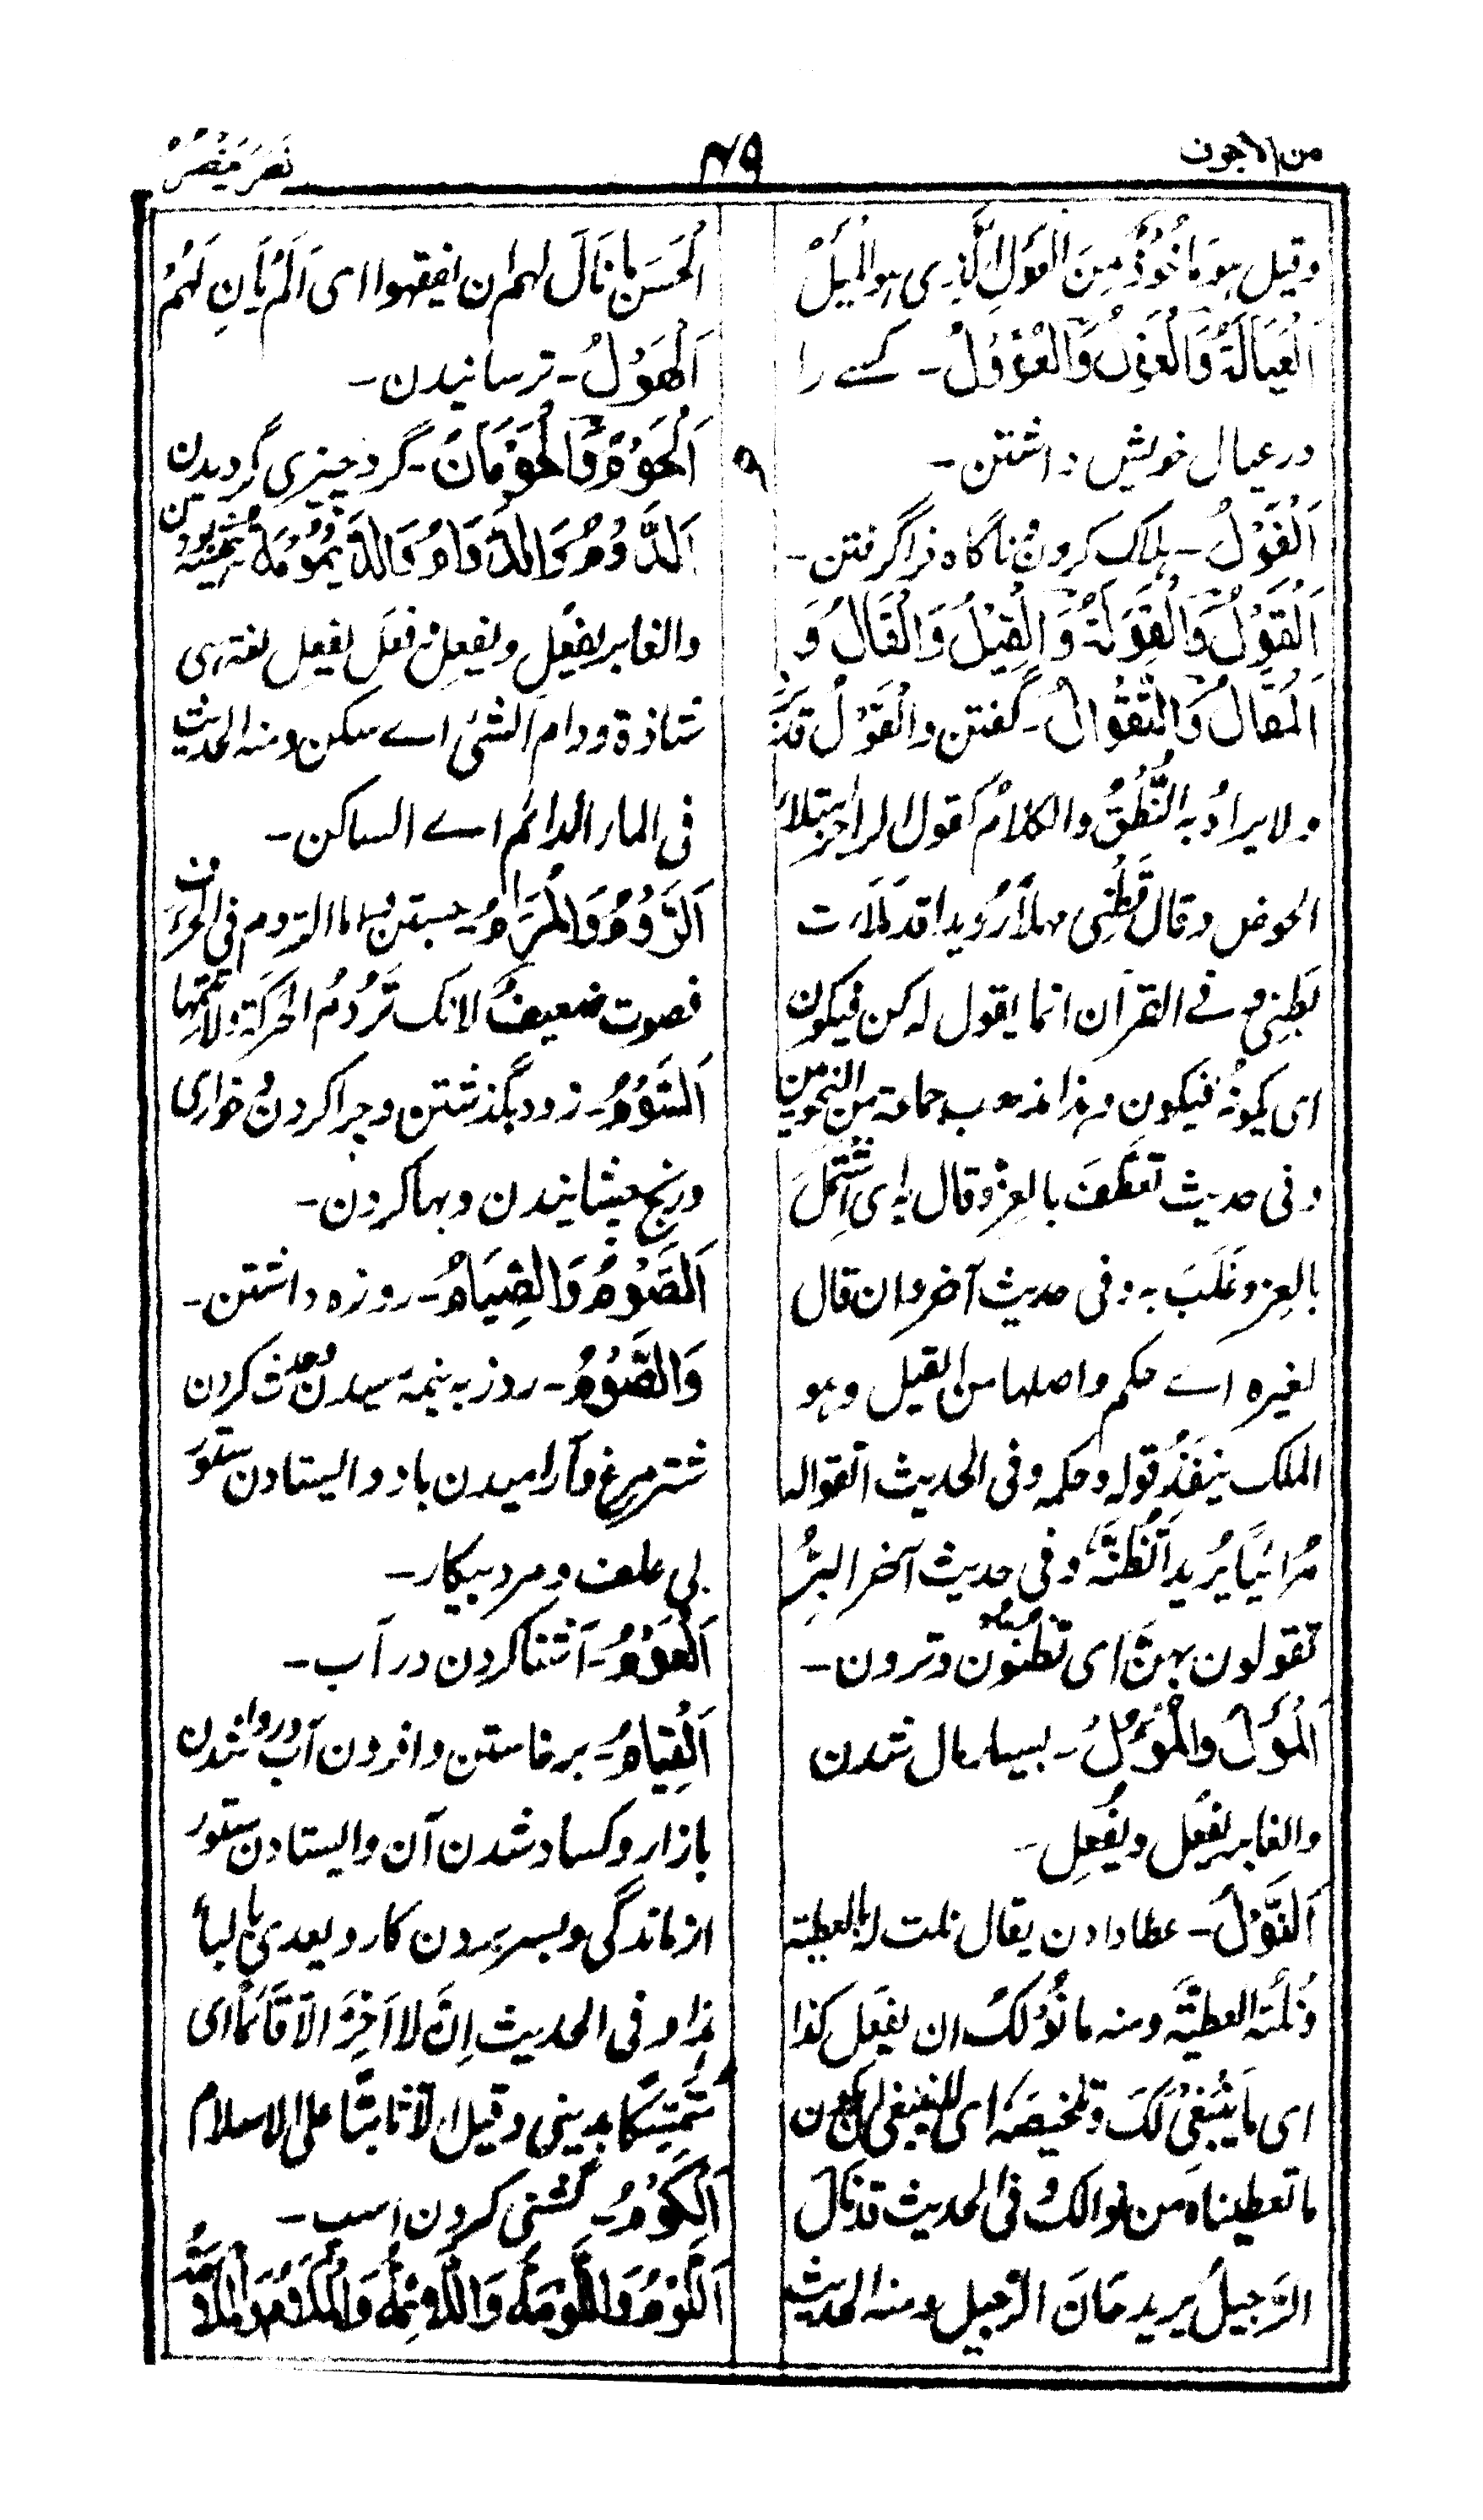 من الاجوف
۴۷۹
نَصَرَ یَنْصُرُ
وقیل ہو مَاخُوذٌ مِنَ العَوْلِ الَّذِی ہو المَیْلُ
اَلْعِیَالَۃُ وَالْعَوْلُ وَالْعُؤُوْلُ۔ کسے را
در عیال خویش داشتن۔
اَلْغَوْلُ۔ ہلاک کردن و ناگاہ فراگرفتن۔
اَلْقَوْلُ وَالْقَوْلَۃُ وَالْقِیْلُ وَالْقَالُ وَ
اَلْمَقَالُ وَالتَّقْوَالُ۔ گفتن والْقَوْلُ قد
ولا یرادُ بہ النُّطْقُ والکلامُ کقول الراجز امتلاء
الحوض وقال قَطْنِی مہلاً رُوَیدا قد مَلَاْت
بَطنِی و فے القرآن انما یقول لہ کن فیکون
ای یُکوِّنُہ فیکون وہذا مذہب جماعۃ من النحویین
وفی حدیث تَعَطَّفَ بالعِزّ وقال بہ ای اشْتَمَلَ
بالعِز وغَلَبَ بہ وفی حدیث آخر و ان قال
لغیرہ اے حکم واصلہا من القیل وہو
الملک ینفَذُ قولہ وحکمہ وفی الحدیث اتقوالہ
مُرائیًا یُرید اَتَظُنُّہ وفی حدیث آخر البِرُّ
تقولون بہنَّ ای تظنون وترون۔
اَلْمَوْلُ والْمُؤُولُ۔ بسیار مال شدن
والغابر یفعَل ویفعِل۔
اَلنَّوْلُ۔ عطا دادن یقال نلت لہ بالعطیۃ
ونُلْتُہ العطیَّۃَ ومنہ ما نَوْلُکَ ان یفعل کذا
ای ما یَنْبَغِیْ لَکَ وتلخیصُہ ای لا ینبغی ان یکون
ما تعطیناہ من نوالک و فی الحدیث قد نَالَ
الرَّحِیلُ یُرید حَانَ الرحیل ومنہ الحدیث
الْحَسَنِ مَا نَالَ لہم ان یفقہوا ای اَلَمْ یَأنِ لَہُمْ
اَلْهَوْلُ۔ ترسانیدن۔
اَلْحَوْمُ وَالْحَوَمَانُ۔ گرد چیزی گردیدن
اَلدَّوْمُ وَالدَّوَامُ وَالدَّیْمُوْمَۃُ۔ ہمیشہ بودن
والغابر یفعُل ویفعل و فعَل یفعِل لغۃ ہی
شاذۃ ودام الشئ اے سکن ومنہ الحدیث
فی الماء الدائم اے الساکن۔
اَلرَّوْمُ وَالْمَرَامُ۔ جستن و اما الروم فی الحروف
فصوت ضعیفٌ لانک تَرُومُ الحرکۃ ولا تُتِمُّہا
اَلسَّوْمُ۔ زود بگذشتن و چرا کردن و خواری
ورنج چشانیدن وبہا کردن۔
اَلصَّوْمُ وَالصِّیَامُ۔ روزہ داشتن۔
وَالصَّوْمُ۔ روز بہ نیمہ رسیدن و حدث کردن
شترمرغ و آرامیدن باد و ایستادن ستور
بی علف و مرد بیکار۔
اَلْعَوْمُ۔ آشنا کردن در آب۔
اَلْقِیَامُ۔ برخاستن و افزودن آب و روا شدن
بازار و کساد شدن آن و ایستادن ستور
از ماندگی و بسر بردن کار و یعدی بالباء
ہذا و فی الحدیث اِنْ لا اَخِرَّ الّا قَائمًا ای
مُتَمَسِّکًا بدینی وقیل الّا ثابتًا علی الاسلام
اَلْکَوْمُ۔ گشنی کردن اسپ۔
اَللَّوْمُ وَاللَّوْمَۃُ وَاللَّائِمَۃُ وَالْمَلَامُ وَالْمَلَامَۃُ